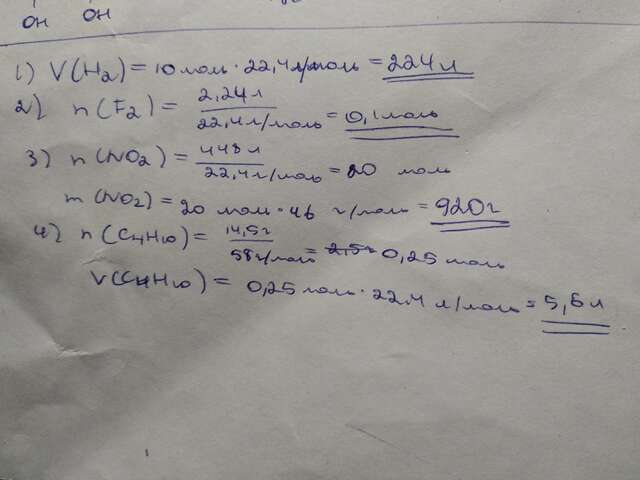 OH OH
1) V(H₂) = 10 моль · 22,4 л/моль = 224 л
2) n(F₂) = 2,24 л / 22,4 л/моль = 0,1 моль
3) n(NO₂) = 448 л / 22,4 л/моль = 20 моль
m(NO₂) = 20 моль · 46 г/моль = 920 г
4) n(C₄H₁₀) = 14,5 г / 58 г/моль = 0,25 моль
V(C₄H₁₀) = 0,25 моль · 22,4 л/моль = 5,6 л